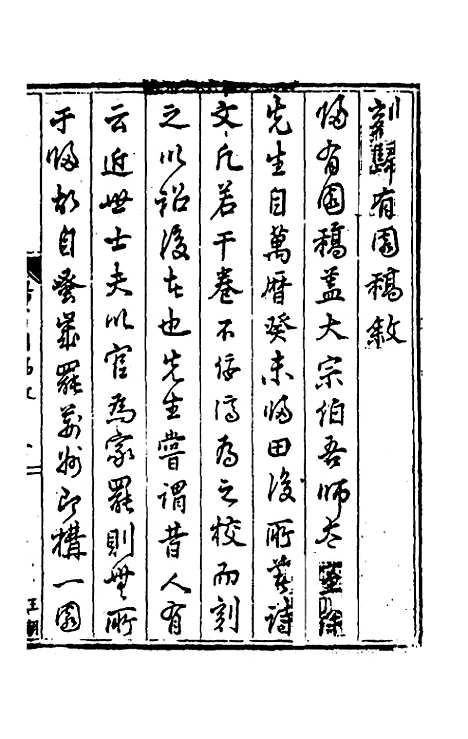 刻歸有園稿敘
歸有園稿蓋大宗伯吾師太室徐
先生自萬曆癸未歸田後所著詩
文凡若干卷不佞濤為之校而刻
之以詔後世也先生嘗謂昔人有
云近世士夫以官為家罷則無所
于歸故自蚤歲罷荊州即搆一園